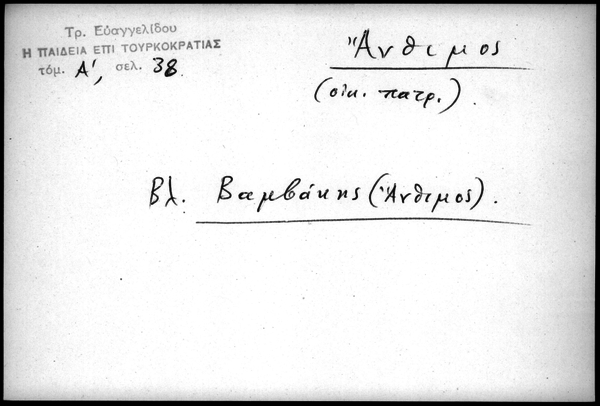 Τρ. Εὐαγγελίδου
Η ΠΑΙΔΕΙΑ ΕΠΙ ΤΟΥΡΚΟΚΡΑΤΙΑΣ
τόμ. Α', σελ. 38
Ἄνθιμος
(οἰκ. πατρ.)
Βλ. Βαμβάκης (Ἄνθιμος).